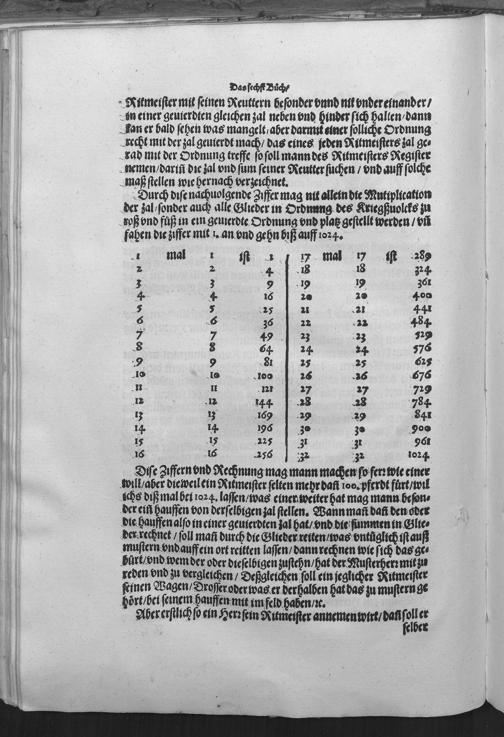 Das sechst Bůch/
Ritmeister mit seinen Reuttern besonder vnnd nit vnder einander/
in einer geuierdten gleichen zal neben vnd hinder sich halten/dann
kan er bald sehen was mangelt/aber darmit einer solliche Ordnung
recht mit der zal geuierdt mach/das eines jeden Ritmeisters zal ge-
rad mit der Ordnung treffe so soll mann des Ritmeisters Register
nemen/dariñ die zal vnd sum seiner Reutter suchen/vnd auff solche
maß stellen wie hernach verzeichnet.
Durch dise nachuolgende Ziffer mag nit allein die Mutiplication
der zal/sonder auch alle Glieder in Ordnung des Kriegßuolcks zu
roß vnd fůß in ein geuierdte Ordnung vnd platz gestellt werden/vñ
fahen die ziffer mit 1. an vnd gehn biß auff 1024.
1 mal 1 ist 1 17 mal 17 ist 289
2 2 4 18 18 324
3 3 9 19 19 361
4 4 16 20 20 400
5 5 25 21 21 441
6 6 36 22 22 484
7 7 49 23 23 529
8 8 64 24 24 576
9 9 81 25 25 625
10 10 100 26 26 676
11 11 121 27 27 729
12 12 144 28 28 784
13 13 169 29 29 841
14 14 196 30 30 900
15 15 225 31 31 961
16 16 256 32 32 1024
Dise Ziffern vnd Rechnung mag mann machen so ferr wie einer
will/aber dieweil ein Ritmeister selten mehr dañ 100. pferdt fürt/wil
ichs diß mal bei 1024. lassen/was einer weiter hat mag mann beson-
der ein hauffen von derselbigen zal stellen. Wann mañ den oder
die hauffen also in einer geuierdten zal hat/vnd die summen in Glie-
der rechnet/soll mañ durch die Glieder reiten/was vntüglich ist auß
mustern vnd auff ein ort reitten lassen/dann rechnen wie sich das ge-
bürt/vnd wem der oder dieselbigen zustehn/hat der Musterherr mit zu
reden vnd zu vergleichen/Deßgleichen soll ein jeglicher Ritmeister
seinen Wagen/Drosser oder was er derhalben hat das zu mustern ge-
hört/bei seinem hauffen mit im feld haben/ꝛc.
Aber erstlich so ein Herr sein Ritmeister annemen wirt/dañ soll er
selber